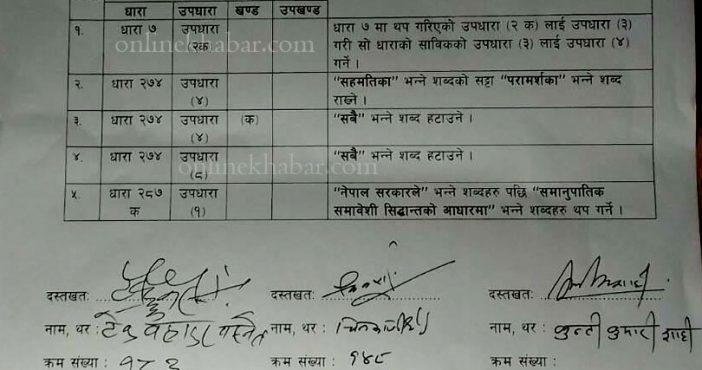 धारा उपधारा खण्ड उपखण्ड
onlinekhabar.com
१. धारा ७ उपधारा २क धारा ७ मा थप गरिएको उपधारा (२ क) लाई उपधारा (३)
गरी सो धाराको साविकको उपधारा (३) लाई उपधारा (४)
गर्ने ।
२. धारा २७४ उपधारा (४) "सहमतिका" भन्ने शब्दको सट्टा "परामर्शका" भन्ने शब्द
राख्ने ।
३. धारा २७४ उपधारा (४) (क) "सबै" भन्ने शब्द हटाउने ।
४. धारा २७४ उपधारा (८) "सबै" भन्ने शब्द हटाउने ।
onlinekhabar.com
५. धारा २८७ क उपधारा (१) "नेपाल सरकारले" भन्ने शब्दहरु पछि "समानुपातिक
समावेशी सिद्धान्तको आधारमा" भन्ने शब्दहरु थप गर्ने ।
दस्तखत: दस्तखत: दस्तखत:
नाम, थर: टेक बहादुर बस्नेत नाम, थर: नाम, थर: कुन्ती कुमारी शाही
क्रम संख्या : क्रम संख्या : १४८ क्रम संख्या :